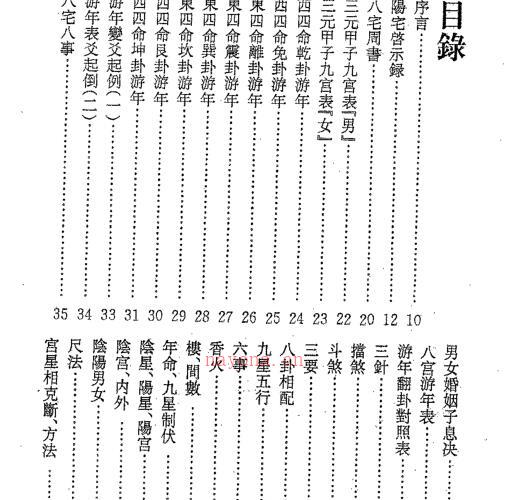 目錄
序言 10
陽宅啓示録 12
八宅周書 20
三元甲子九宮表『男』 22
三元甲子九宮表『女』 23
西四命乾卦游年 24
西四命免卦游年 25
東四命離卦游年 26
東四命震卦游年 27
東四命巽卦游年 28
東四命坎卦游年 29
西四命艮卦游年 30
西四命坤卦游年 31
游年變爻起例(一) 33
游年表爻起倒(二) 34
八宅八事 35
男女婚姻子息决
八宫游年表
游年翻卦對照表
三針
擋煞
斗煞
三要
八卦相配
九星五行
六事
香火
樓、間數
年命、九星制伏
陰星、陽星、陽宫
陰宫、内外
陰陽男女
尺法
宫星相克斷、方法